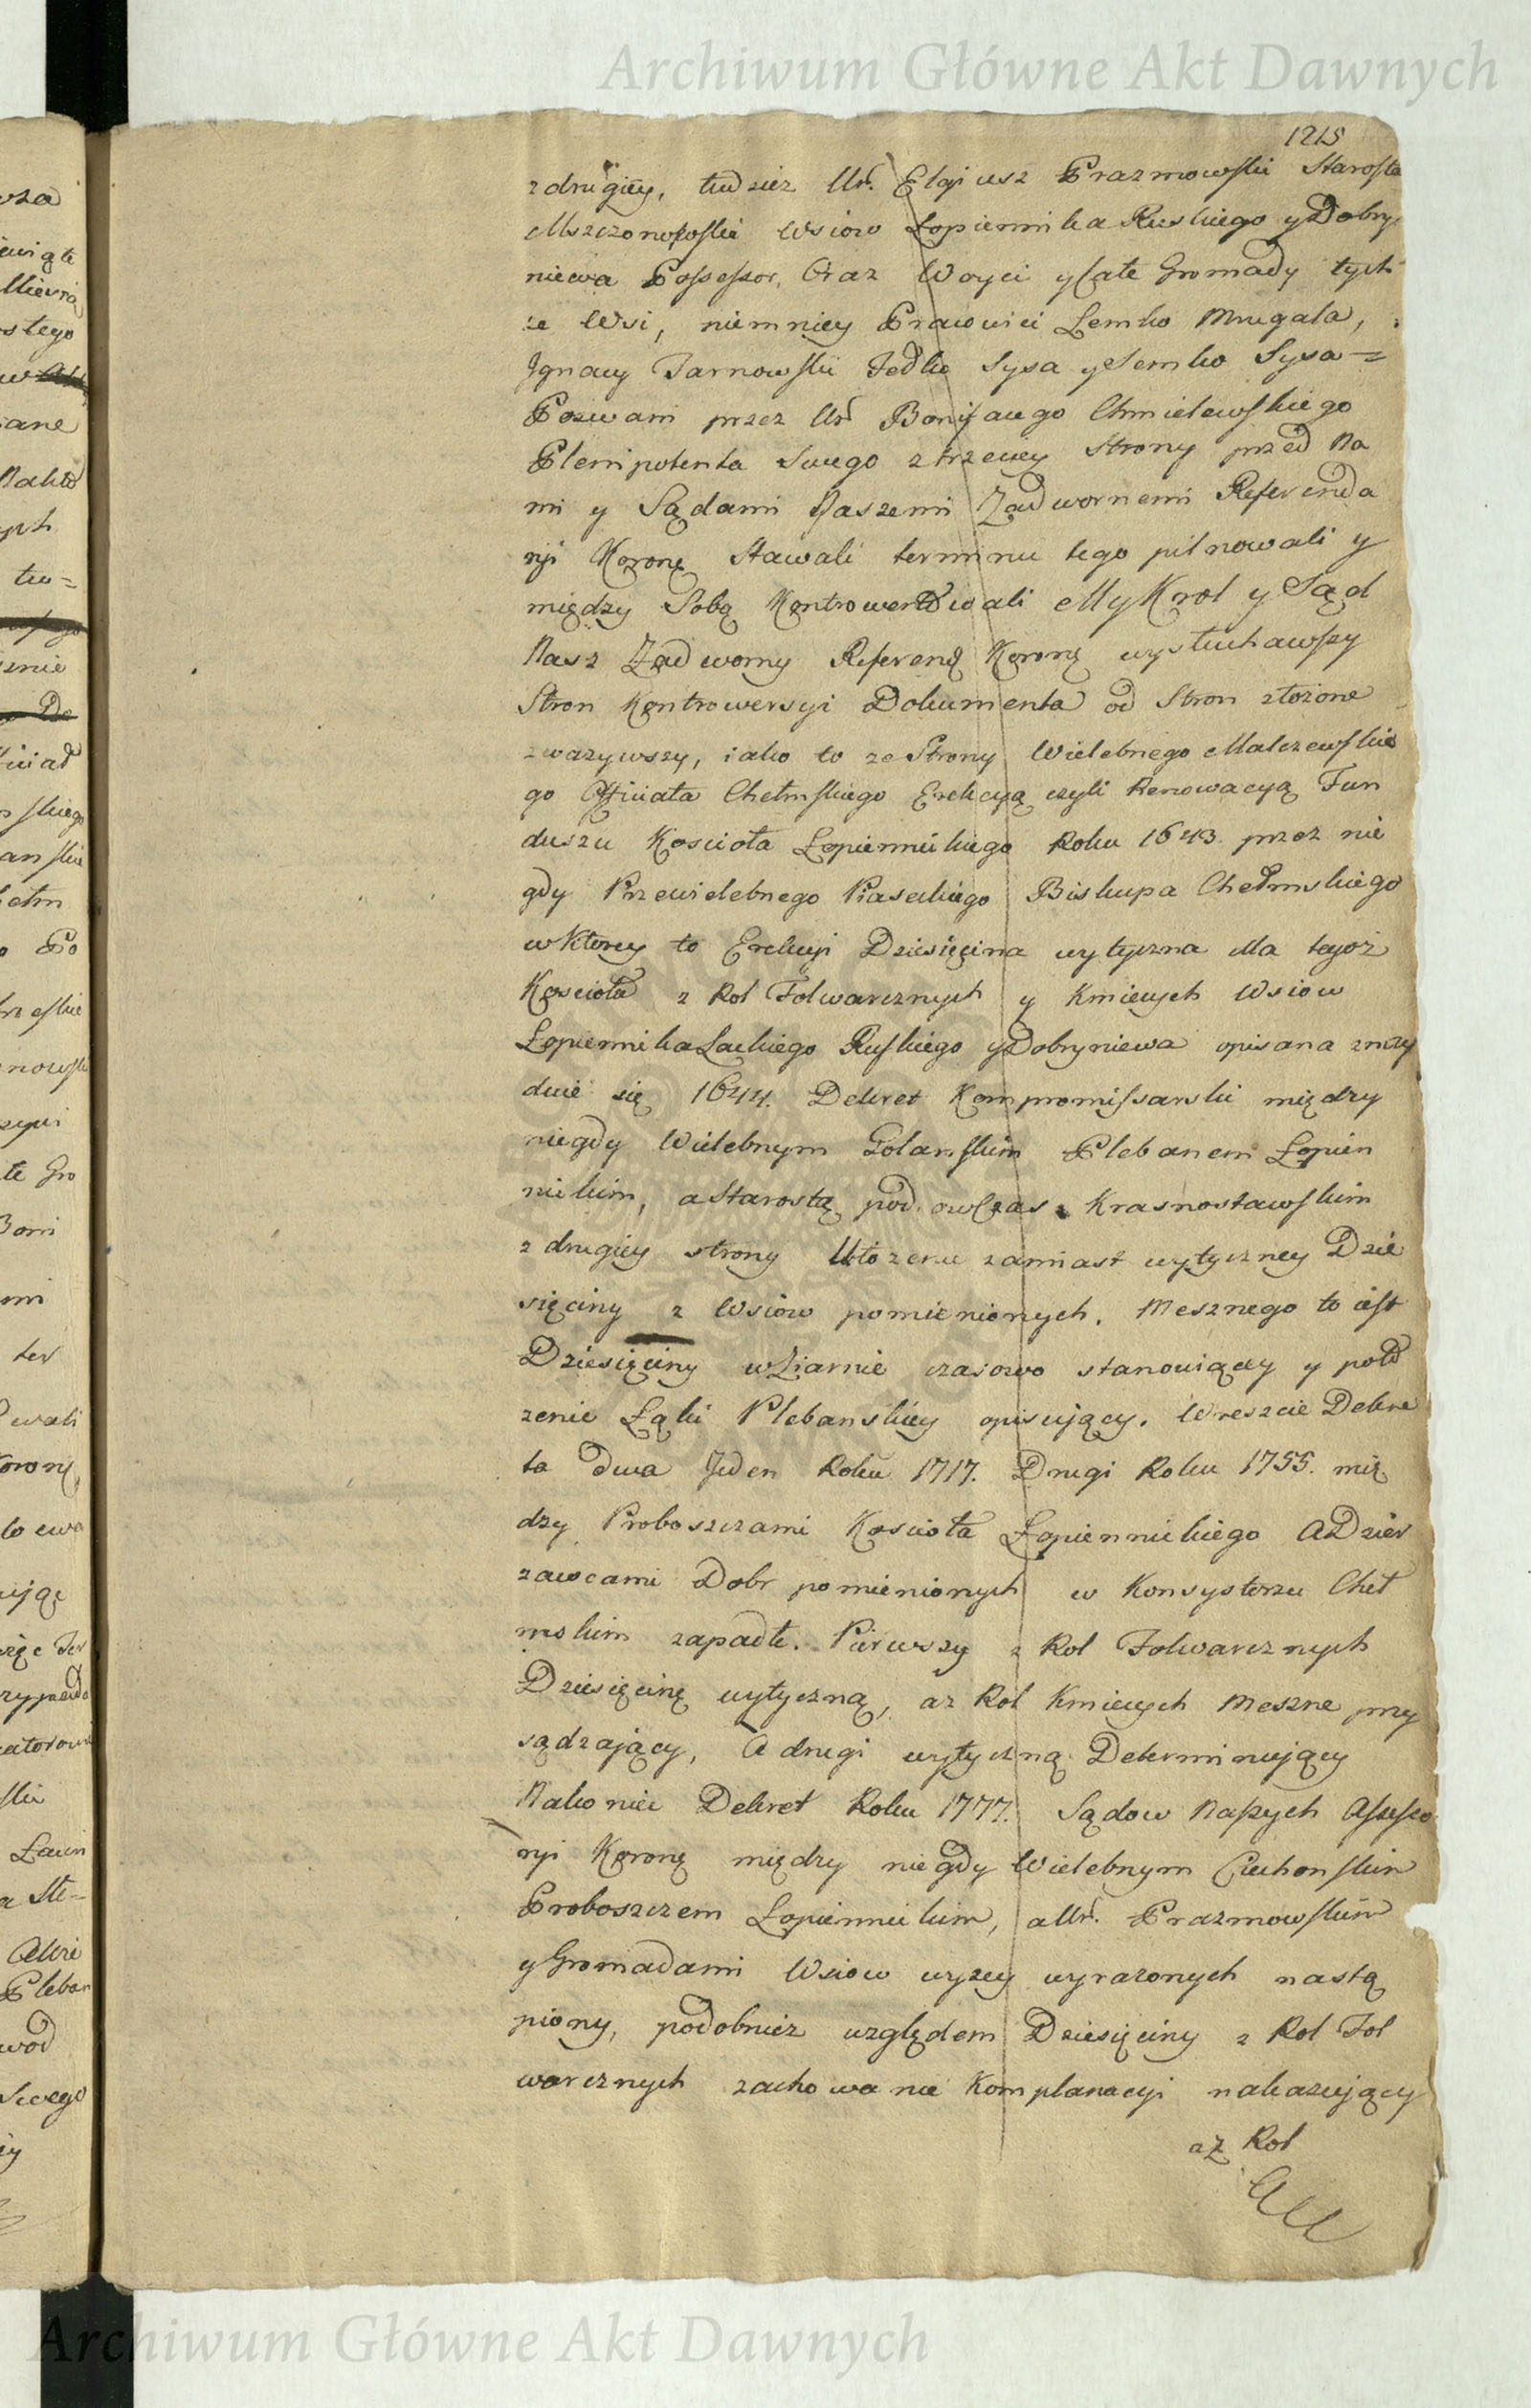 Archiwum Główne Akt Dawnych
1215
zdrugiey, tudziez Ur. Eligiusz Prazmowski Starosta
Mszczonowski Wsiow Łopiennika Ruskiego y Dobry
niewa Possessor, Oraz Woyci y całe Gromady tych
ze Wsi, niemniey Pracowici Lemko Mrugala,
Ignacy Tarnowski Fedko Sysa y Semko Sysa =
Pozwani przez Ur Bonifacego Chmielewskiego
Plenipotenta Swego ztrzeciey Strony przed Na
mi y Sądami Naszemi Zadwornemi Referenda
ryi Koronę Stawali terminu tego pilnowali y
między Sobą Kontrowertowali My Krol y Sąd
Nasz Zadworny Referenę Koronę wysłuchawszy
Stron Kontrowersyi Dokumenta od Stron złożone
zwazywszy, iako to ze Strony Wielebnego Malczewskie
go Officiała Chełmskiego Erekcyą czyli Renowacyą Fun
duszu Kościoła Łopiennickiego Roku 1643. przez nie
gdy Przewielebnego Piaseckiego Biskupa Chełmskiego
w Ktorey to Erekcyi Dziesięcina wytyczna dla tegoż
Kościoła z Rol Folwarcznych y Kmiecych Wsiow
Łopiennika Lackiego Ruskiego y Dobryniewa opisana znay
duie się 1644. Dekret Kompromissarski między
niegdy Wielebnym Polanskim Plebanem Łopien
nickim, a Starostą pod owczas Krasnostawskim
z drugiey strony Ułożenie zamiast wytyczney Dzie
sięciny z Wsiow pomienionych. Mesznego to iest
Dziesięciny w Ziarnie czasowo stanowiący y poło
zenie Łąki Plebanskiey opisujący. Wreszcie Dekre
ta dwa Jeden Roku 1717. Drugi Roku 1755. mię
dzy Proboszczami Kościoła Łopiennickiego A Dzier
zawcami Dobr pomienionych w Konsystorzu Cheł
mskim zapadłe. Pierwszy z Rol Folwarcznych
Dziesięcinę wytyczną, az Rol Kmiecych Meszne przy
sądzający, A drugi wytyczną Determinujący
Nakoniec Dekret Roku 1777. Sądow Naszych Assesso
ryi Koronę między niegdy Wielebnym Ciechonskim
Proboszczem Łopiennickim, a Ur. Prazmowskim
y Gromadami Wsiow wyzey wyrazonych nastą
piony, podobniez względem Dziesięciny z Rol Fol
warcznych zachowanie Komplanacyi nakazujący
az Rol
Archiwum Główne Akt Dawnych